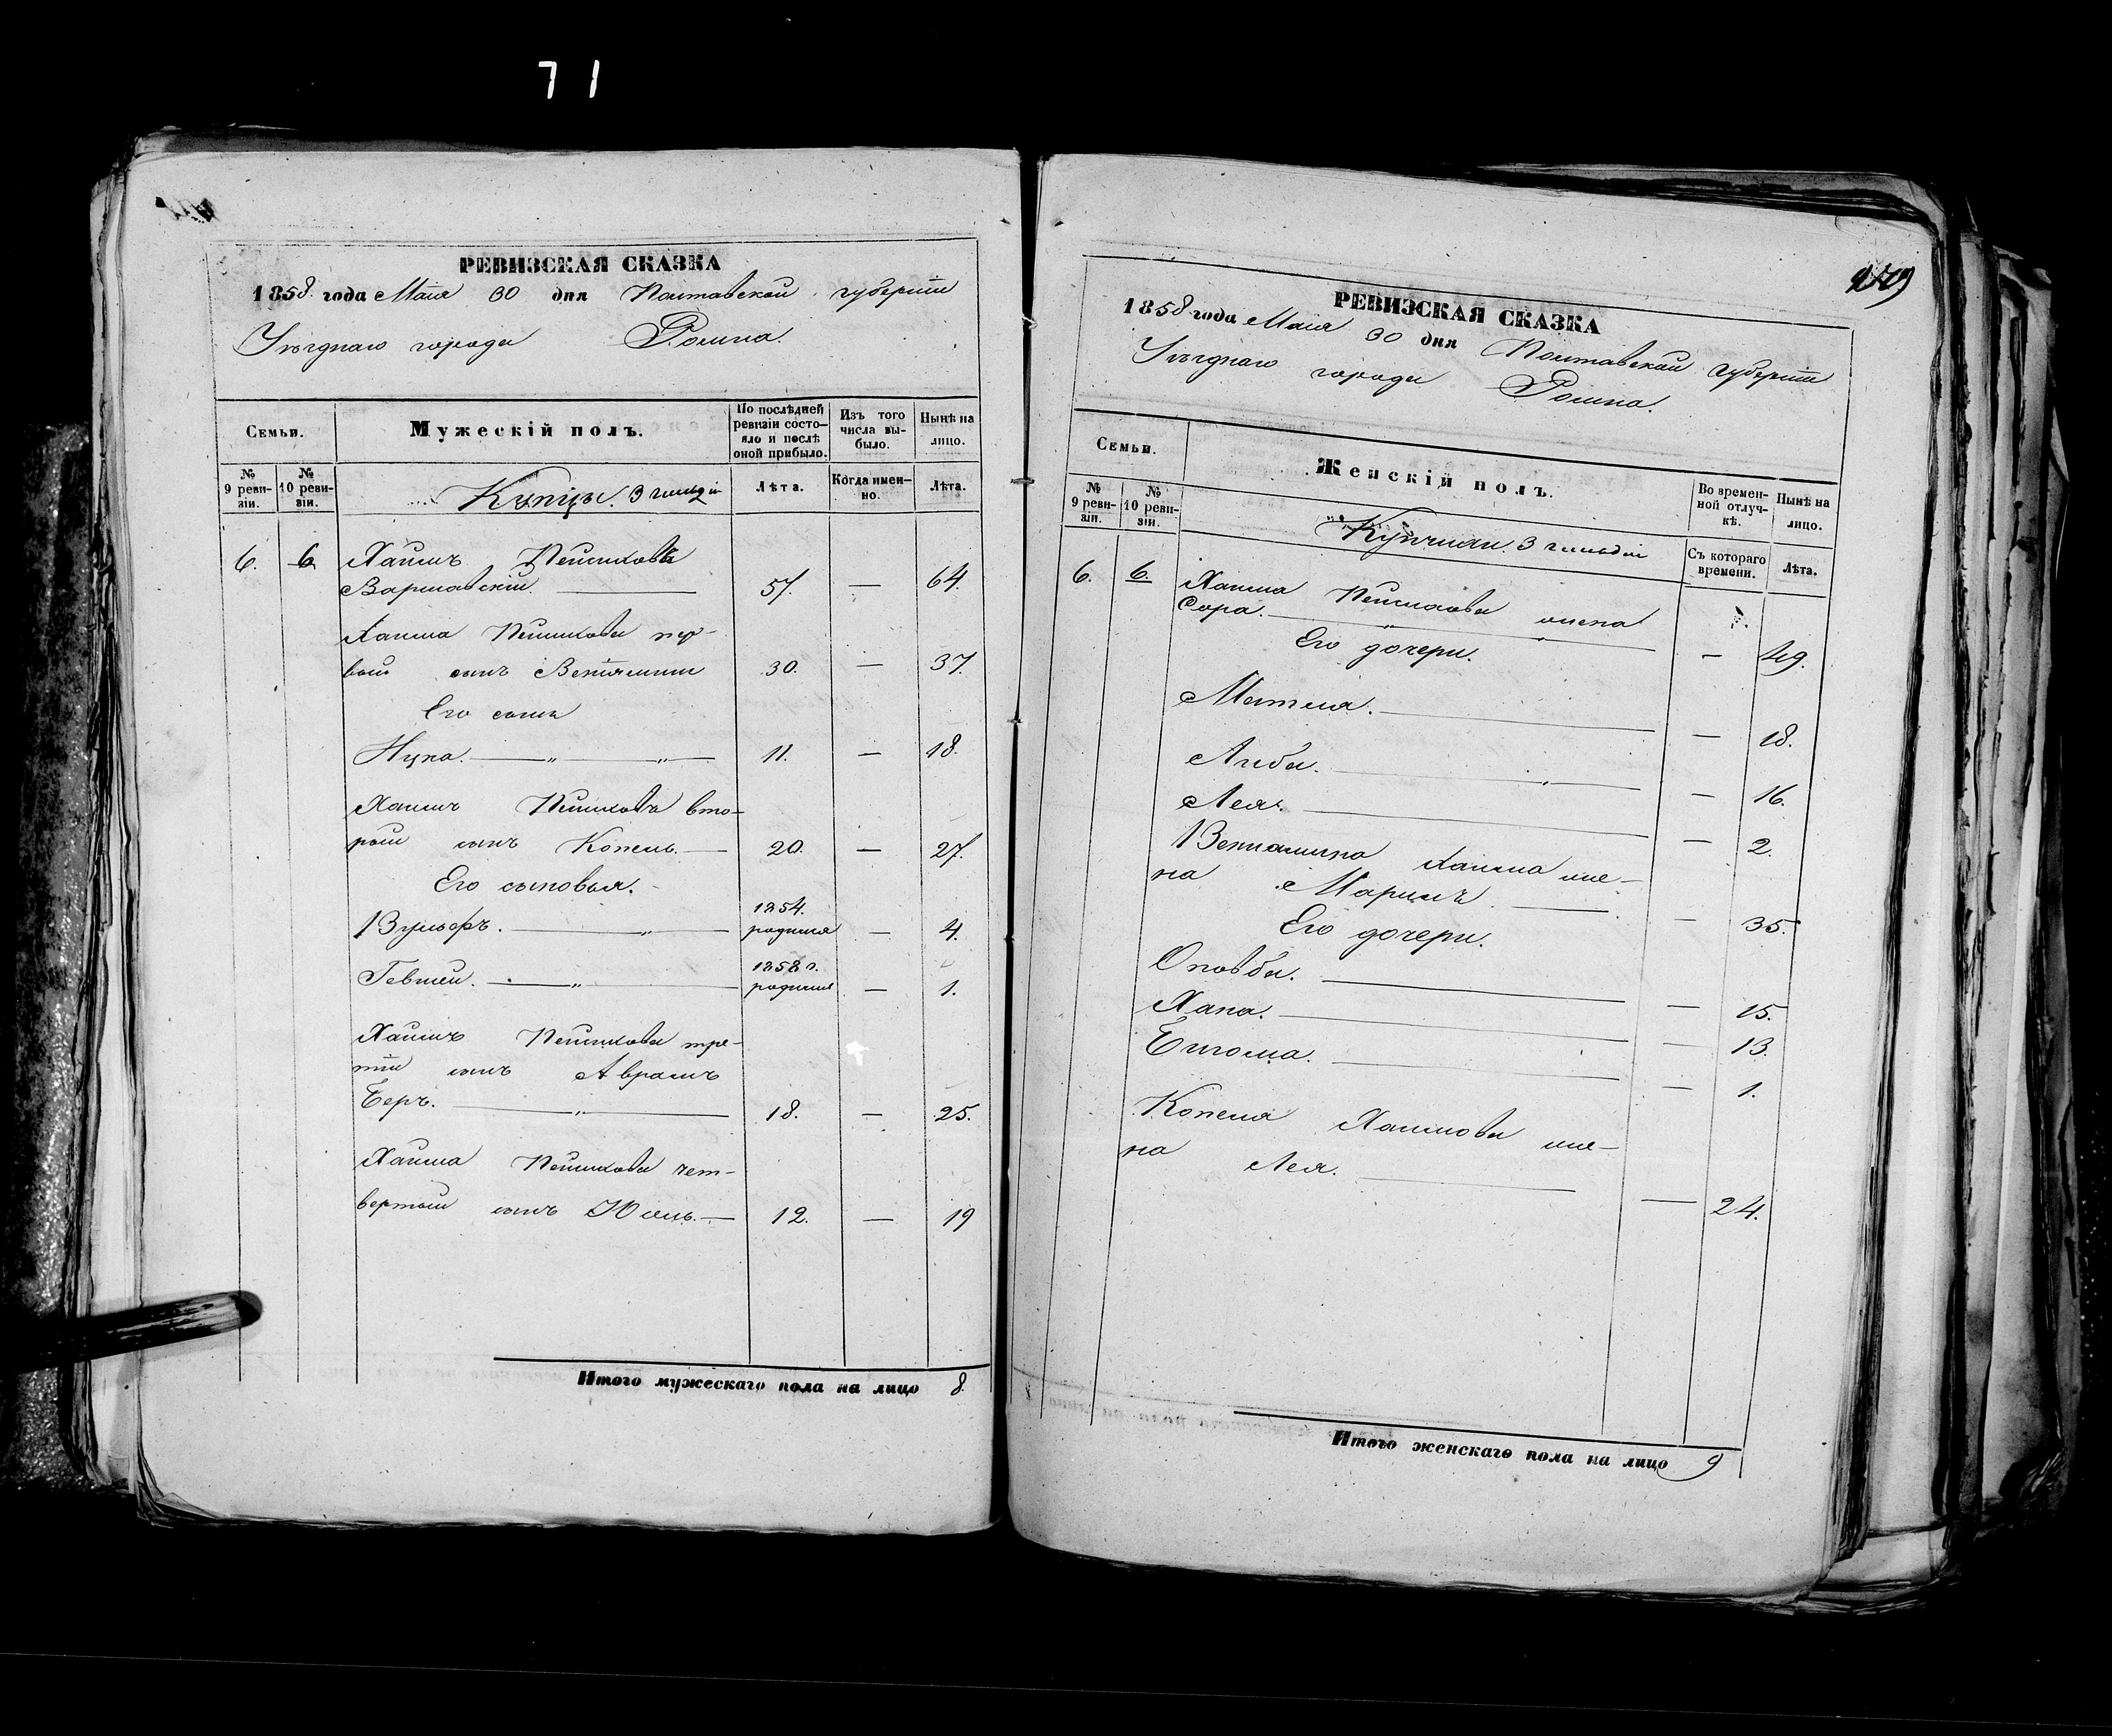 71
РЕВИЗСКАЯ СКАЗКА
1858 года Маія 30 дня Полтавской губерніи
Уѣзднаго города Ромна.
Семьи.
Мужескій полъ.
По послѣдней ревизіи состо-
яло и послѣ
оной прибыло.
Изъ того
числа вы-
было.
Нынѣ на
лицо.
№
9 реви-
зіи.
№
10 реви-
зіи.
Купцы. 3 гильдіи
Лѣта.
Когда имен-
но.
Лѣта.
6. 6. Хаимъ Пейсиховъ
Варшавскій. 57. — 64.
Хаима Пейсихова пер-
вый сынъ Веніяминъ 30. — 37.
Его сынъ
Нухa. 11. — 18.
Хаимъ Пейсихова вто-
рый сынъ Копель. 20. — 27.
Его сыновья.
1854.
Вульфъ. родился — 4.
1858 г.
Гевшей. родился — 1.
Хаимъ Пейсихова тре-
тій сынъ Аврамъ
Беръ. 18. — 25.
Хаима Пейсихова чет-
вертый сынъ Юдель. 12. — 19
Итого мужескаго пола на лицо 8.
РЕВИЗСКАЯ СКАЗКА
1858 года Маія 30 дня Полтавской губерніи
Уѣзднаго города Ромна.
Семьи.
Женскій полъ.
Во времен-
ной отлуч-
кѣ.
Нынѣ на
лицо.
№
9 реви-
зіи.
№
10 реви-
зіи.
Купчихи. 3 гильдіи
Съ котораго
времени.
Лѣта.
6. 6. Хаима Пейсихова жена
Сора. — 49.
Его дочери.
Матля. — 18.
Либа. — 16.
Лея. — 2.
Веніамина Хаима же-
на Марьямъ. — 35.
Его дочери.
Хана. — 13.
— 15.
— 1.
Копеля Хаимова же-
на Лея. — 24.
Итого женскаго пола на лицо 9